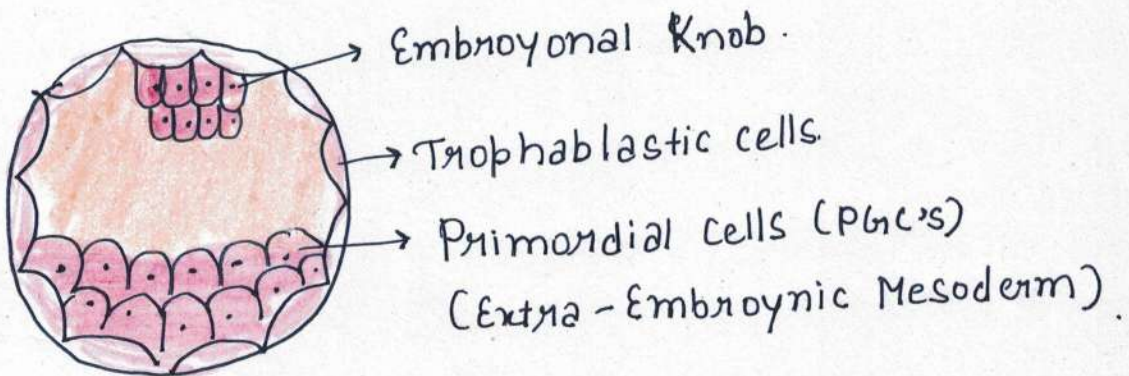 Embroyonal Knob.
Trophablastic cells.
Primordial cells (PGC's)
(Extra-Embroynic Mesoderm).